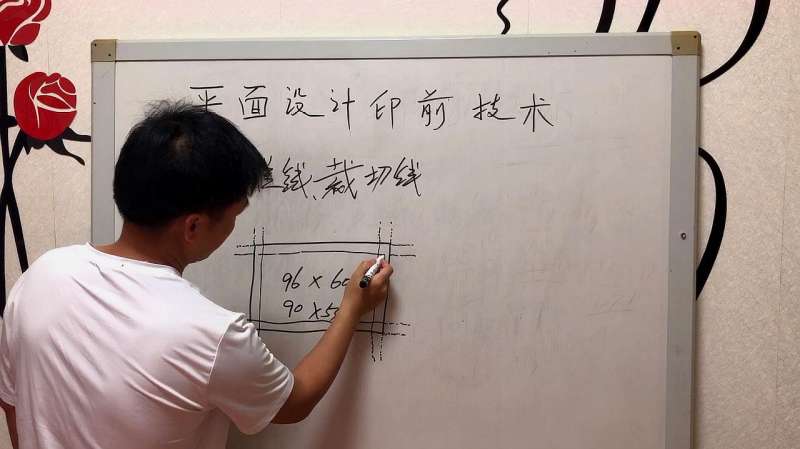 平面设计印前技术
线、裁切线
96 x 60
90 x 5